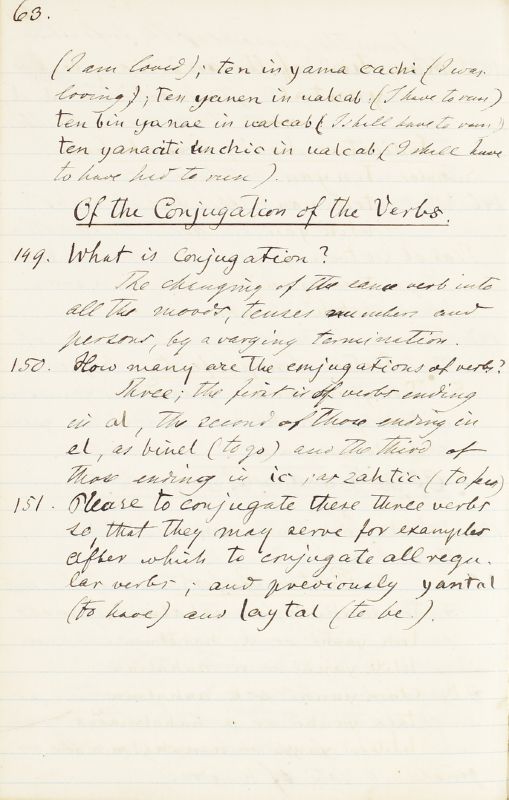 63.
(I am loved); ten in yama cachi (I was
loving); ten yanen in ualcab (I have to run)
ten bin yanae in ualcab (I shall have to run)
ten yanaciti unchic in ualcab (I shall have
to have had to run).
Of the Conjugation of the Verbs.
149. What is conjugation?
The changing of the same verb into
all the moods, tenses numbers and
persons, by a varying termination.
150. How many are the conjugations of verbs?
Three; the first is of verbs ending
in al, the second of those ending in
el, as binel (to go) and the third of
those ending in ic; as zahtic (to
151. Please to conjugate these three verbs
so that they may serve for examples
after which to conjugate all regu-
lar verbs; and previously yantal
(to have) and laytal (to be.).